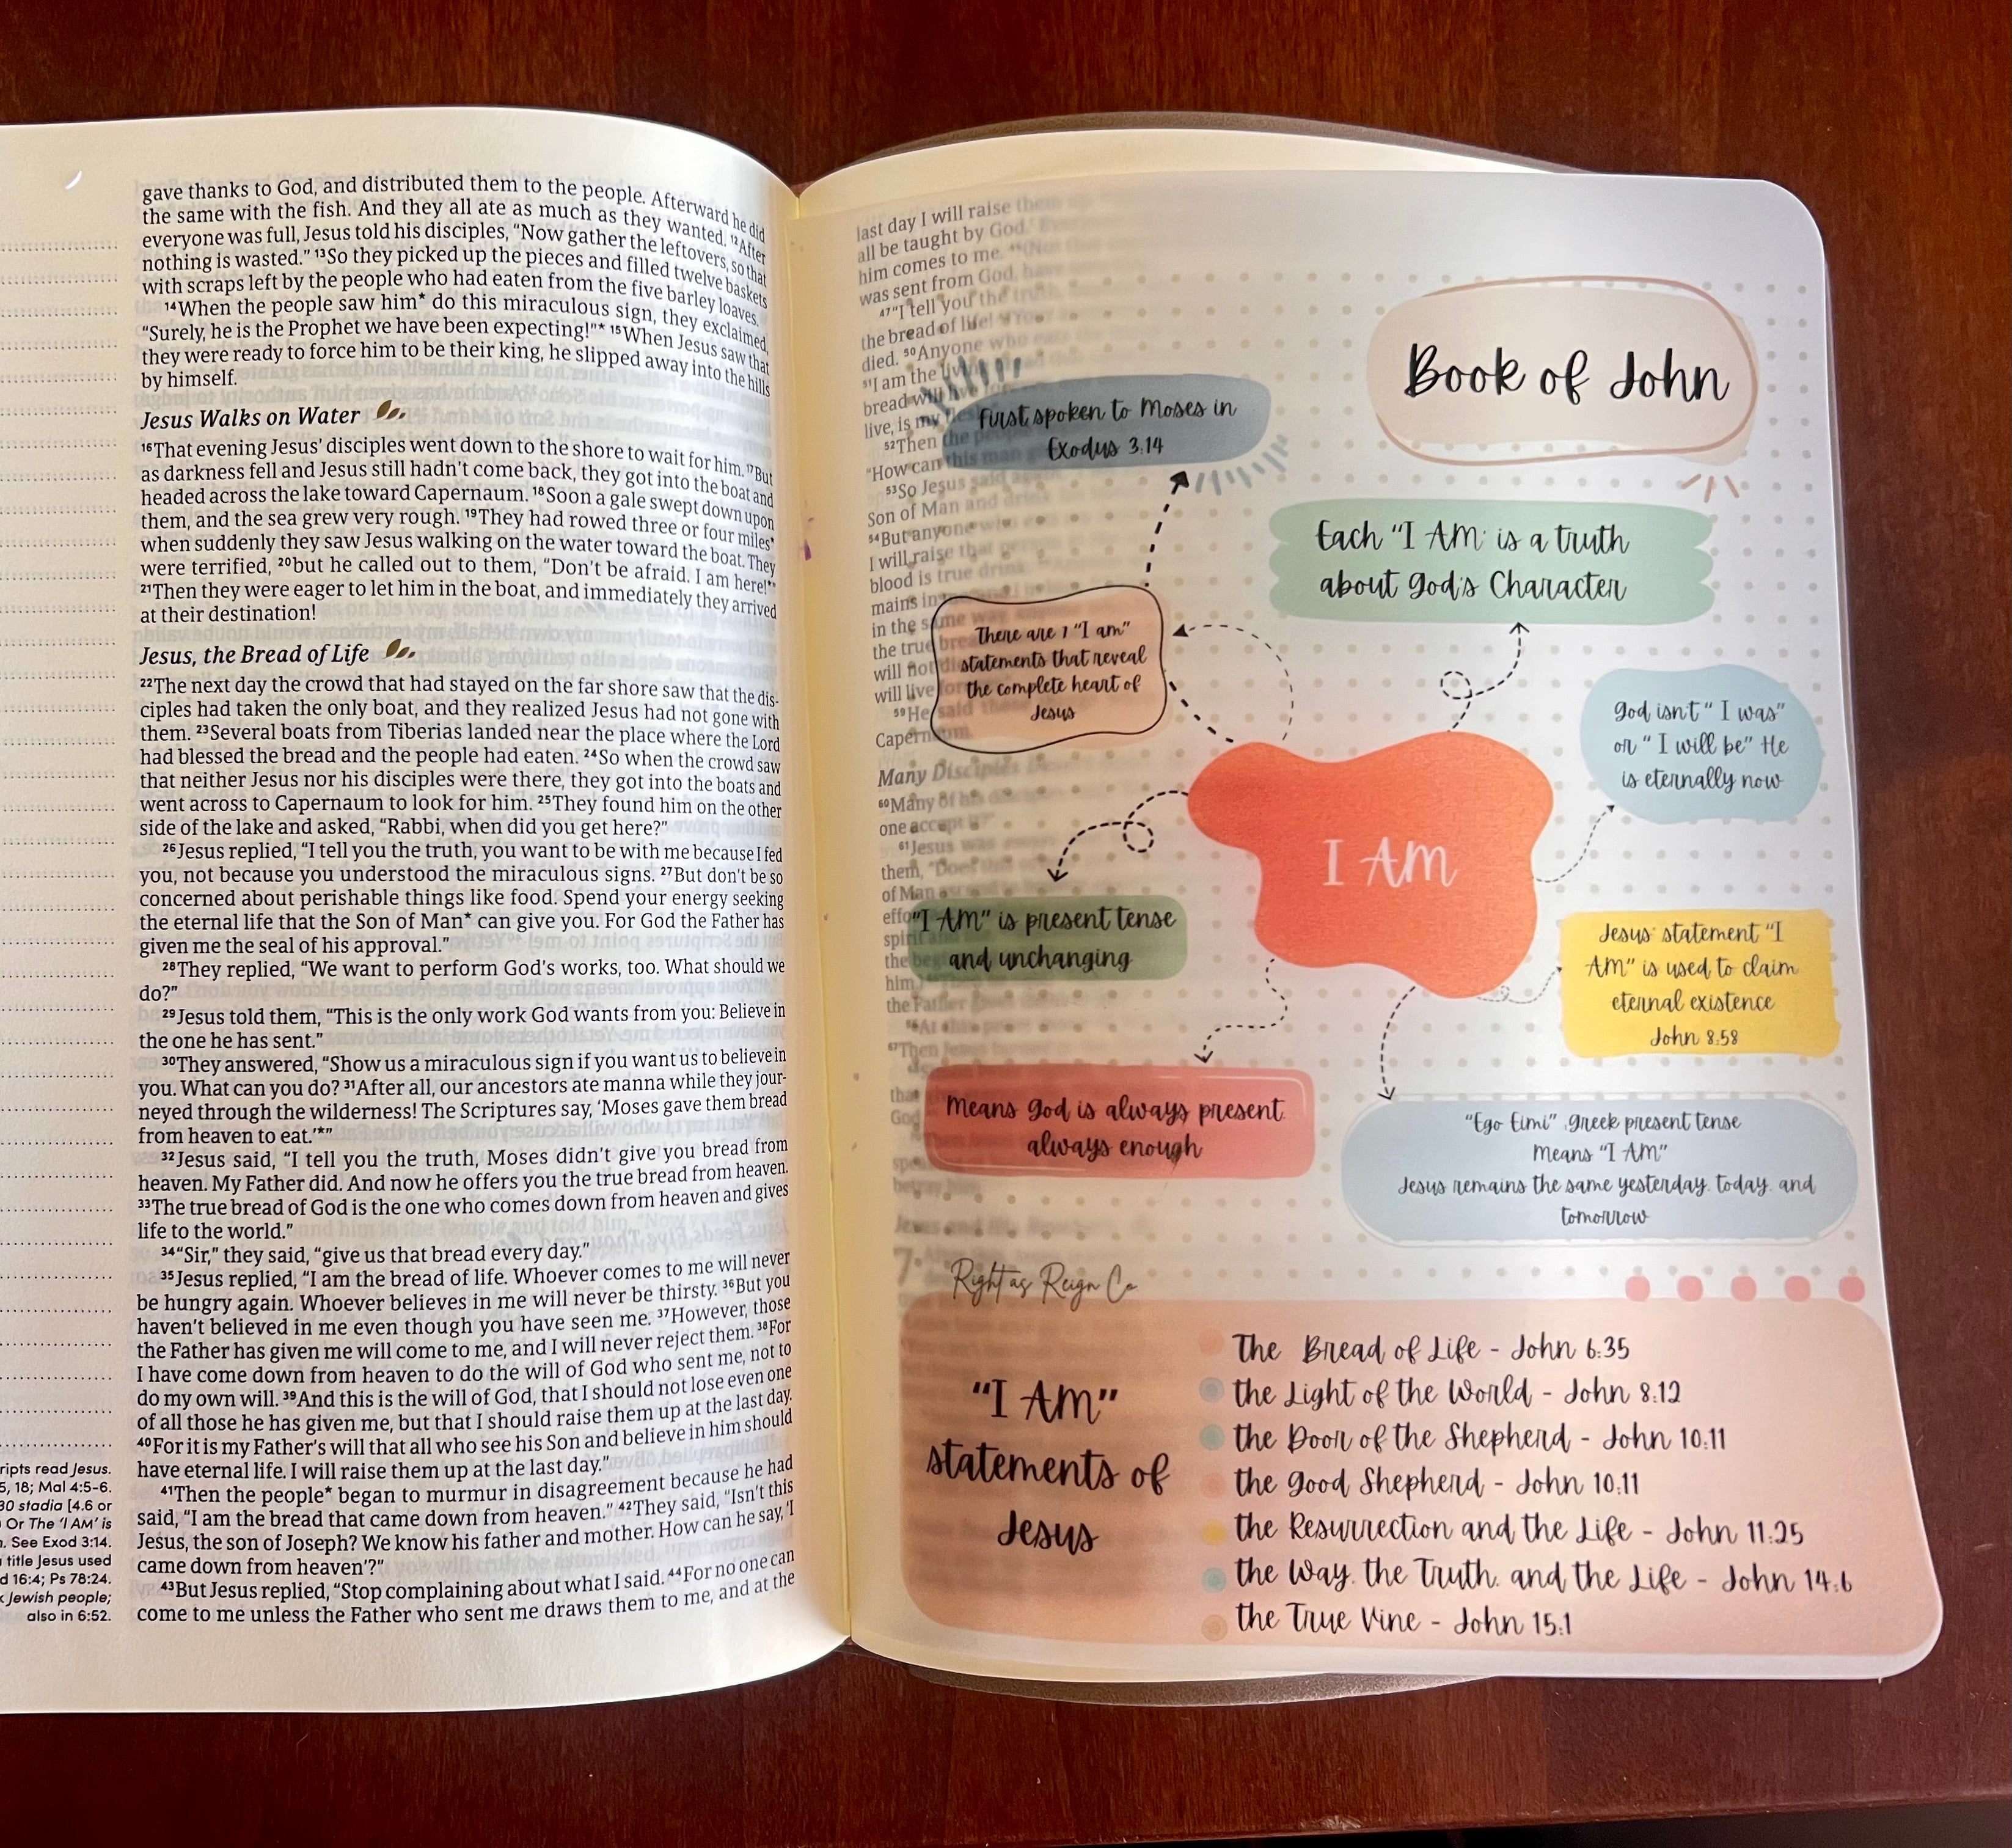 gave thanks to God, and distributed them to the people. Afterward he did
the same with the fish. And they all ate as much as they wanted. 12After
everyone was full, Jesus told his disciples, “Now gather the leftovers, so that
nothing is wasted.” 13So they picked up the pieces and filled twelve baskets
with scraps left by the people who had eaten from the five barley loaves.
14When the people saw him* do this miraculous sign, they exclaimed,
“Surely, he is the Prophet we have been expecting!”* 15When Jesus saw that
they were ready to force him to be their king, he slipped away into the hills
by himself.
Jesus Walks on Water
16That evening Jesus’ disciples went down to the shore to wait for him. 17But
as darkness fell and Jesus still hadn’t come back, they got into the boat and
headed across the lake toward Capernaum. 18Soon a gale swept down upon
them, and the sea grew very rough. 19They had rowed three or four miles*
when suddenly they saw Jesus walking on the water toward the boat. They
were terrified, 20but he called out to them, “Don’t be afraid. I am here!*”
21Then they were eager to let him in the boat, and immediately they arrived
at their destination!
Jesus, the Bread of Life
22The next day the crowd that had stayed on the far shore saw that the dis-
ciples had taken the only boat, and they realized Jesus had not gone with
them. 23Several boats from Tiberias landed near the place where the Lord
had blessed the bread and the people had eaten. 24So when the crowd saw
that neither Jesus nor his disciples were there, they got into the boats and
went across to Capernaum to look for him. 25They found him on the other
side of the lake and asked, “Rabbi, when did you get here?”
26Jesus replied, “I tell you the truth, you want to be with me because I fed
you, not because you understood the miraculous signs. 27But don’t be so
concerned about perishable things like food. Spend your energy seeking
the eternal life that the Son of Man* can give you. For God the Father has
given me the seal of his approval.”
28They replied, “We want to perform God’s works, too. What should we
do?”
29Jesus told them, “This is the only work God wants from you: Believe in
the one he has sent.”
30They answered, “Show us a miraculous sign if you want us to believe in
you. What can you do? 31After all, our ancestors ate manna while they jour-
neyed through the wilderness! The Scriptures say, ‘Moses gave them bread
from heaven to eat.’*”
32Jesus said, “I tell you the truth, Moses didn’t give you bread from
heaven. My Father did. And now he offers you the true bread from heaven.
33The true bread of God is the one who comes down from heaven and gives
life to the world.”
34“Sir,” they said, “give us that bread every day.”
35Jesus replied, “I am the bread of life. Whoever comes to me will never
be hungry again. Whoever believes in me will never be thirsty. 36But you
haven’t believed in me even though you have seen me. 37However, those
the Father has given me will come to me, and I will never reject them. 38For
I have come down from heaven to do the will of God who sent me, not to
do my own will. 39And this is the will of God, that I should not lose even one
of all those he has given me, but that I should raise them up at the last day.
40For it is my Father’s will that all who see his Son and believe in him should
have eternal life. I will raise them up at the last day.”
41Then the people* began to murmur in disagreement because he had
said, “I am the bread that came down from heaven.” 42They said, “Isn’t this
Jesus, the son of Joseph? We know his father and mother. How can he say, ‘I
came down from heaven’?”
43But Jesus replied, “Stop complaining about what I said. 44For no one can
come to me unless the Father who sent me draws them to me, and at the
read Jesus.
5, 18; Mal 4:5-6.
30 stadia [4.6 or
Or The ‘I AM’ is
See Exod 3:14.
title Jesus used
16:4; Ps 78:24.
Jewish people;
also in 6:52.
last day I will raise them
all be taught by God.’
him comes to me. 46
was sent from God
47“I tell you the truth
the bread of life!
died. 50Anyone who
51I am the living
bread will live
live, is my
52Then the people
“How can this man
53So Jesus said
Son of Man and drink
54But anyone
I will raise that
blood is true drink
mains in
in the same
the true
will not
will live
59He said these
Capernaum.
Many Disciples
60Many of his
one accept
61Jesus was
them, “Does
of Man
the
him
the Father
67Then
that
God
7
Book of John
First spoken to Moses in
Exodus 3:14
Each “I AM’ is a truth
about God’s Character
There are 7 “I am”
statements that reveal
the complete heart of
Jesus
God isn’t “ I was”
or “ I will be” He
is eternally now
I AM
“I AM” is present tense
and unchanging
Jesus’ statement “I
AM” is used to claim
eternal existence
John 8:58
Means God is always present,
always enough
“Ego Eimi” ,Greek present tense
Means “I AM”
Jesus remains the same yesterday, today, and
tomorrow
Right as Reign Co
“I AM”
statements of
Jesus
The Bread of Life - John 6:35
the Light of the World - John 8:12
the Door of the Shepherd - John 10:11
the Good Shepherd - John 10:11
the Resurrection and the Life - John 11:25
the Way, the Truth, and the Life - John 14:6
the True Vine - John 15:1